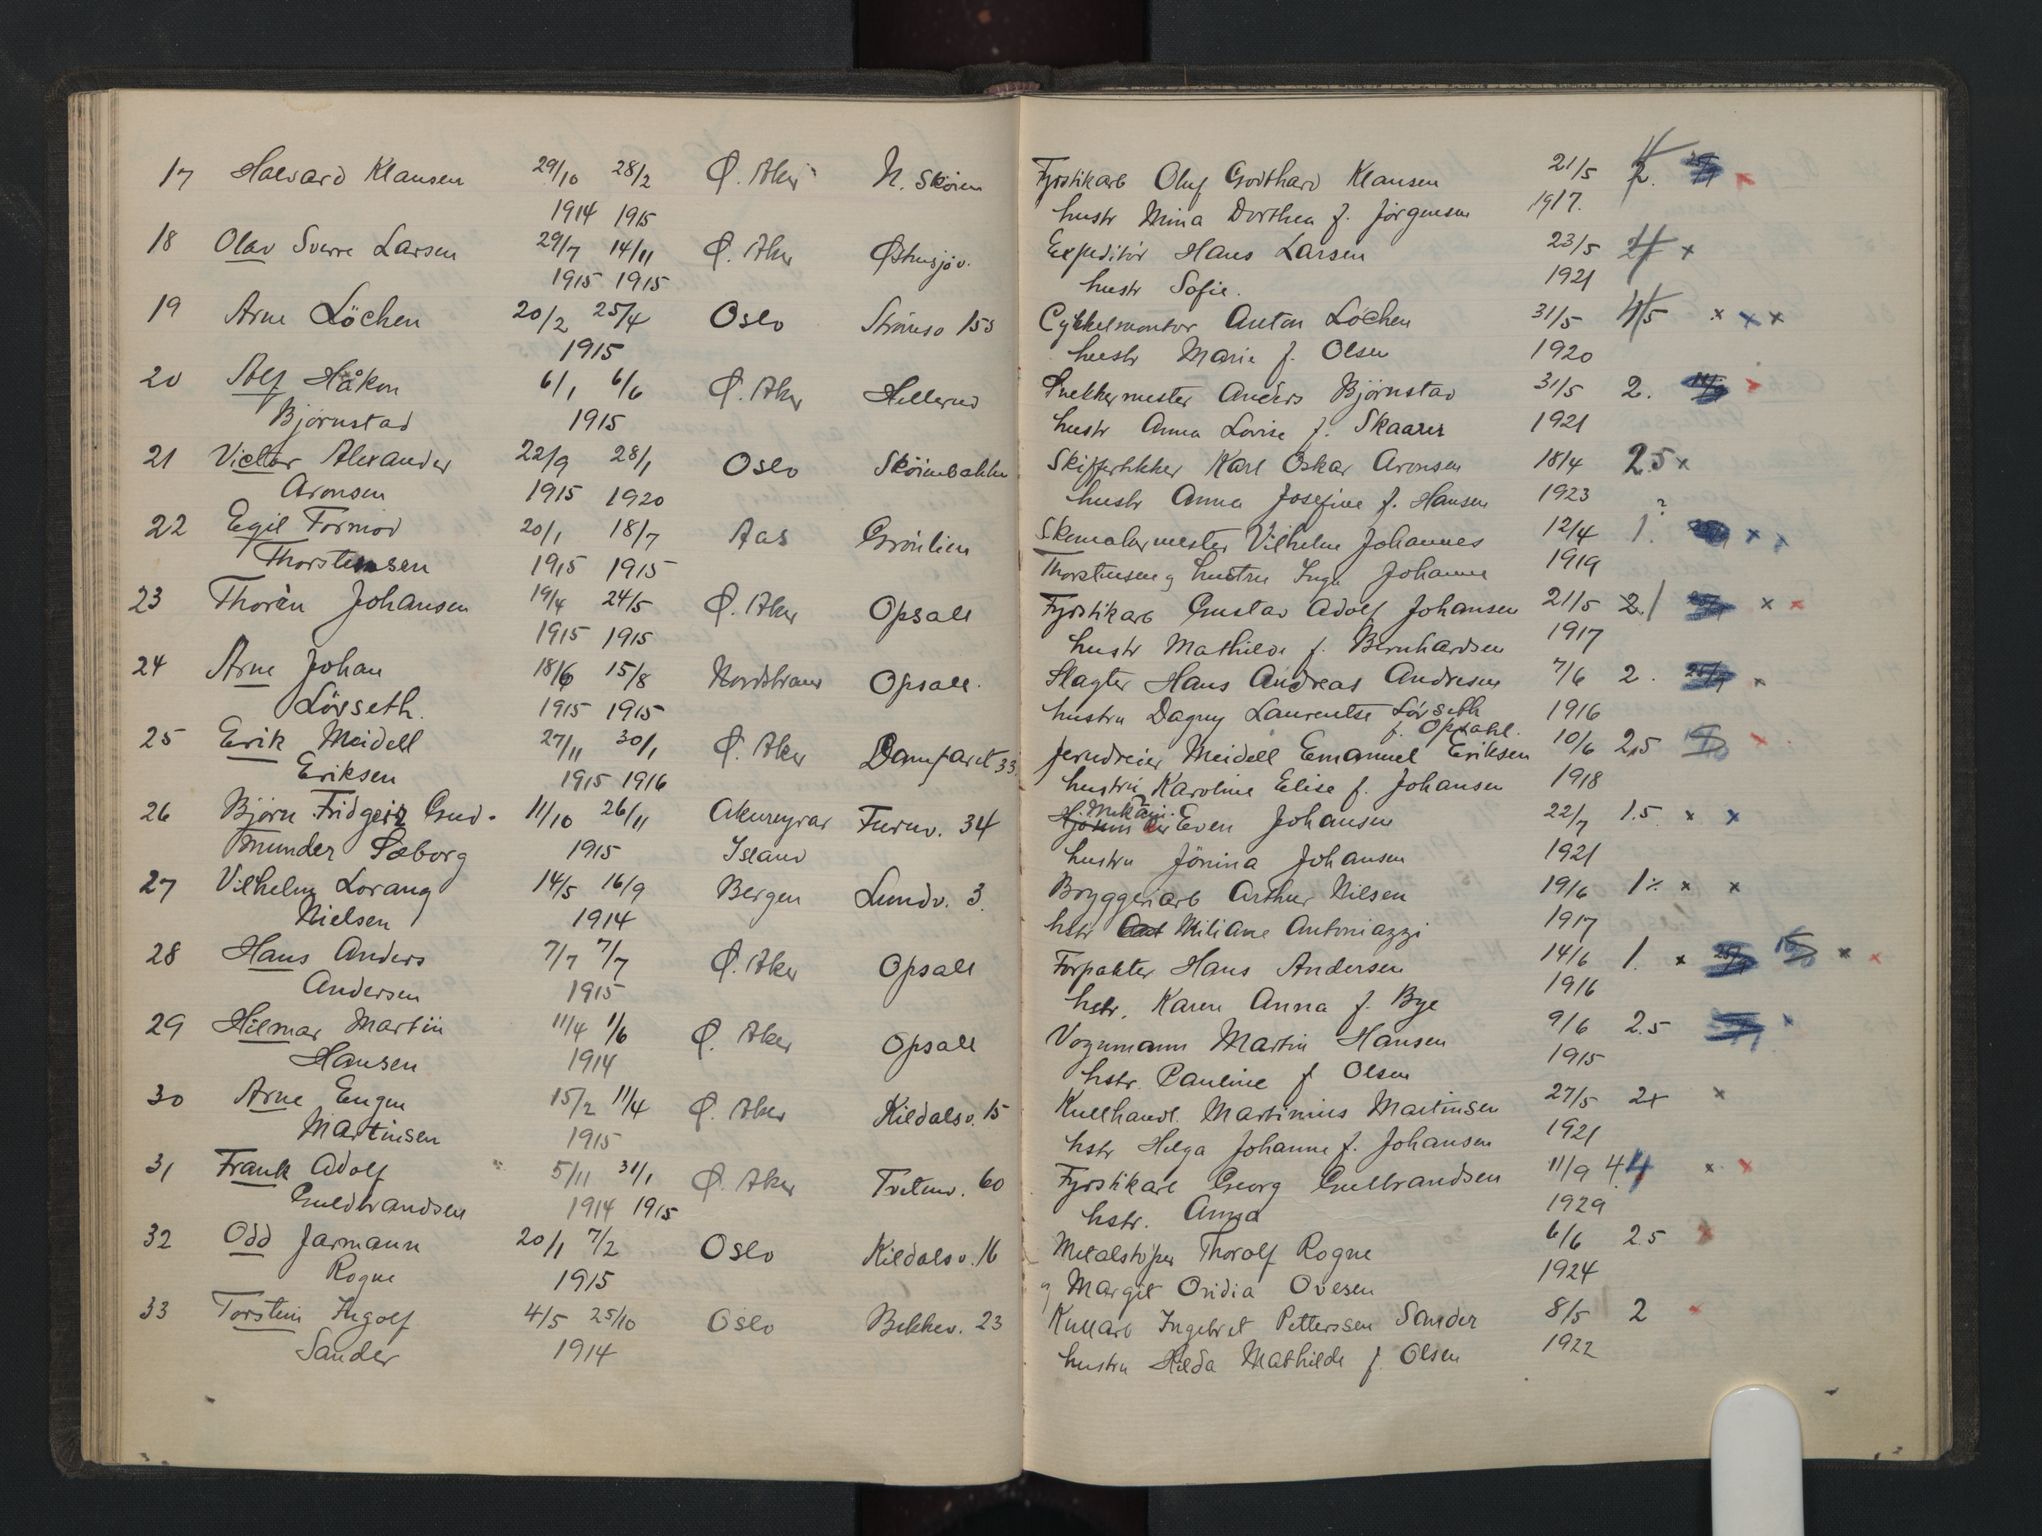 17 Halvard Klausen 29/10 28/2 Ø. Aker N. Skøien Fyrstikarb Oluf Godthard Klausen 21/5 2.
1914 1915 hustr Mina Dorthea f. Jørgensen 1917.
18 Olav Sverre Larsen 29/7 14/11 Ø. Aker Østensjøv. Expeditør Hans Larsen 23/5 x
1915 1915 hustr Sofie. 1921
19 Arne Löchen 20/2 25/4 Oslo Strømsv 155 Cykkelmontør Anton Löchen 31/5 x x x
1915 hustr Marie f. Olsen 1920
20 Alf Håkon 6/1 6/6 Ø. Aker Hellerud Snekkermester Anders Bjørnstad 31/5 2. x
Bjørnstad 1915 hustr Anna Lovise f. Skaarer 1921
21 Victor Alexander 22/9 28/1 Oslo Skøienbakken Skiffertekker Karl Oskar Aronsen 18/4 2.5 x
Aronsen 1915 1920 hustr Anna Josefine f. Hansen 1923
22 Egil Tormod 20/1 18/7 Aas Grønlien Skomakermester Vilhelm Johannes 12/4 1. ? x x
Thorstensen 1915 1915 Thorstensen og hustru Inga Johanne 1919
23 Thorèn Johansen 19/4 24/5 Ø. Aker Opsall Fyrstikarb Gustav Adolf Johansen 21/5 2. x x
1915 1915 hustr Mathilde f. Bernhardsen 1917
24 Arne Johan 18/6 15/8 Nordstrand Opsall. Slagter Hans Andreas Andresen 7/6 2. x
Lövseth. 1915 1915 hustru Dagny Laurentse Lövseth 1916
f. Opsahl.
25 Erik Meidell 27/11 30/1 Ø. Aker Damfaret 33 Jerndreier Meidell Emanuel Eriksen 10/6 2.5 x
Eriksen 1915 1916 hustru Karoline Elise f. Johansen 1918
26 Bjørn Fridgeir Gud- 11/10 26/11 Akureyrar Furuv. 34 Even Johansen 22/7 1.5 x x
munder Söborg 1915 Island hustru Jónina Johansen 1921
27 Vilhelm Lorang 14/5 16/9 Bergen Lundv. 3. Bryggeriarb Arthur Nilsen 19/6 x x
Nielsen 1914 hstr Miliane Antoniazzi 1917
28 Hans Anders 7/7 7/7 Ø. Aker Opsall Forpakter Hans Andersen 14/6 1. x x x
Andersen 1915 hstr. Karen Anna f. Bye 1916
29 Hilmar Martin 11/4 1/6 Ø. Aker Opsall Vognmann Martin Hansen 9/6 2.5 x
Hansen 1914 hstr. Pauline f Olsen 1915
30 Arne Eugen 15/2 11/4 Ø. Aker Kildalsv. 15 Kullhandl. Martinius Martinsen 27/5 2x x
Martinsen 1915 hstr Helga Johanne f. Johansen 1921
31 Frank Adolf 5/11 31/1 Ø. Aker Tvetenv. 60 Fyrstikarb Georg Gulbrandsen 11/9 4. x x
Guldbrandsen 1914 1915 hstr. Anna 1929
32 Odd Jarmann 20/1 7/2 Oslo Kildalsv. 16 Metalstøper Thoralf Rogne 6/6 2.5 x
Rogne 1915 og Margit Ovidia Ovesen 1924
33 Torstein Ingolf 4/5 25/10 Oslo Bekkev. 23 Kullarb Ingebret Petterssen Sander 8/5 2 x
Sander 1914 hustru Hilda Mathilde f. Olsen 1922